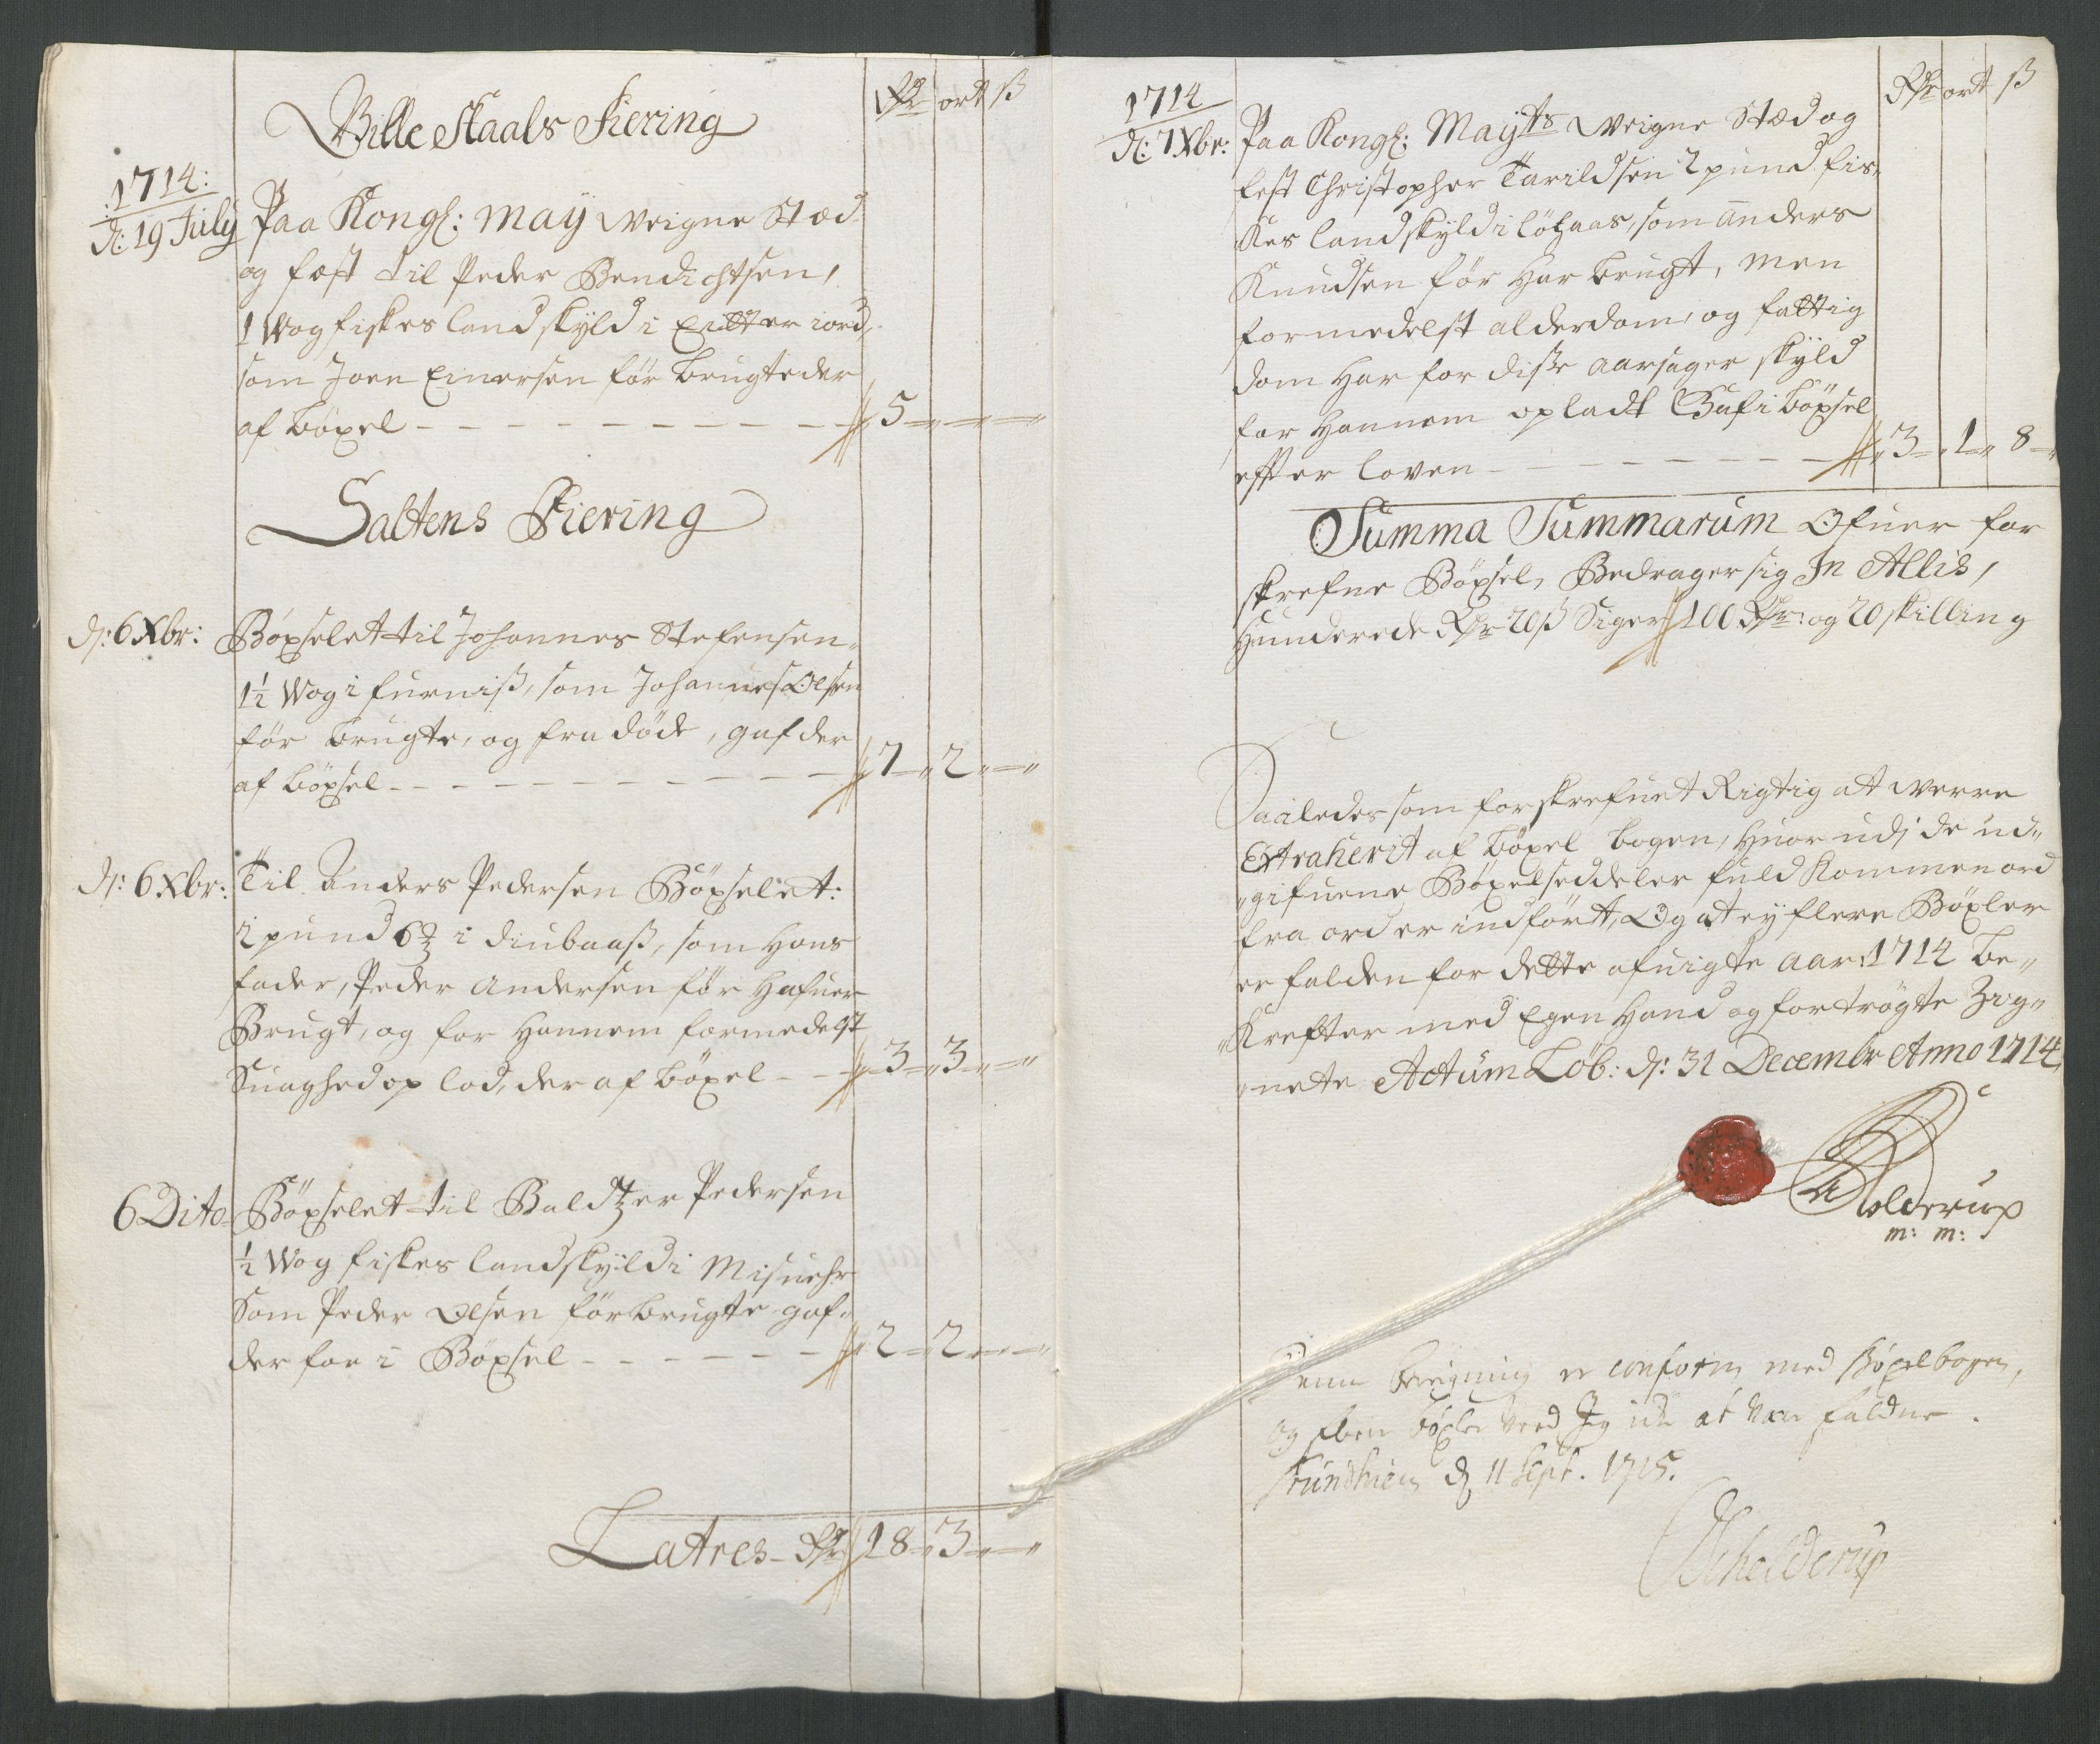 Bille Skaals Fiering
Rdr ort ß
1714:
d: 19 July Paa Kongl: May Weigne Stæd
og fæst til Peder Bendichtsen,
1 Wog fiskes landskyld i Eitter iord,
som Joen Einersen før brugte der
af böxel 5
Saltens Fiering
d: 6 Xbr: Böxselet til Johannes Stefensen
1½ Wog i furniß, som Johannes Olsen
før brugte, og fra döde, gaf der
af böxsel 7 2
d: 6 Xbr: Til Anders Pedersen Böxselet:
2 pund 6 i diubaaß, som Hans
fader, Peder Andersen før Hafuer
Brugt, og for Hannem formedelst
Suaghed op lod, der af böxel 3 3
6 Dito Böxselet til Baldtzer Pedersen
½ Wog fiskes landskyld i Misuehr
Som Peder Olsen før brugte gaf
der for i Böxsel 2 2
Latres Rdr 18 3
1714
Rdr ort ß
d: 7 Xbr: Paa Kongl: Mayts Weigne Stæd og
fest Christopher Tarildsen 2 pund fis
kes landskyld i löchaas, som Anders
Knudsen før Har brugt, men
formedelst alderdom, og fattig
dom Har for diße aarsager skyld
for Hannem opladt Gaf i böxsel
efter loven 3 1 8
Summa Summarum Ofuer for
skrefne Böxsel, Bedrager sig In Allis,
Hunderede Rdr 20 ß Siger 100 Rdr: og 20 skilling
Saaledes som forskrefuet Rigtig at Werre
Extraherit af böxel bogen, Huor udj de ud
gifuene Böxelseddeler fuldkommen ord
fra ord er indført, Og at ey flere Böxler
er falden for dette afuigte aar: 1714 be
krefter med Egen Hand og fortrögte Zig
nete Actum Löb: d: 31 Decembr Anno 1714
Solderup
m: m:
Denne Beregning er conform med Böxelbogen,
og fleere böxler veed Jeg icke at være faldne.
Trundhiem d 11 Sept. 1715.
Schelderup